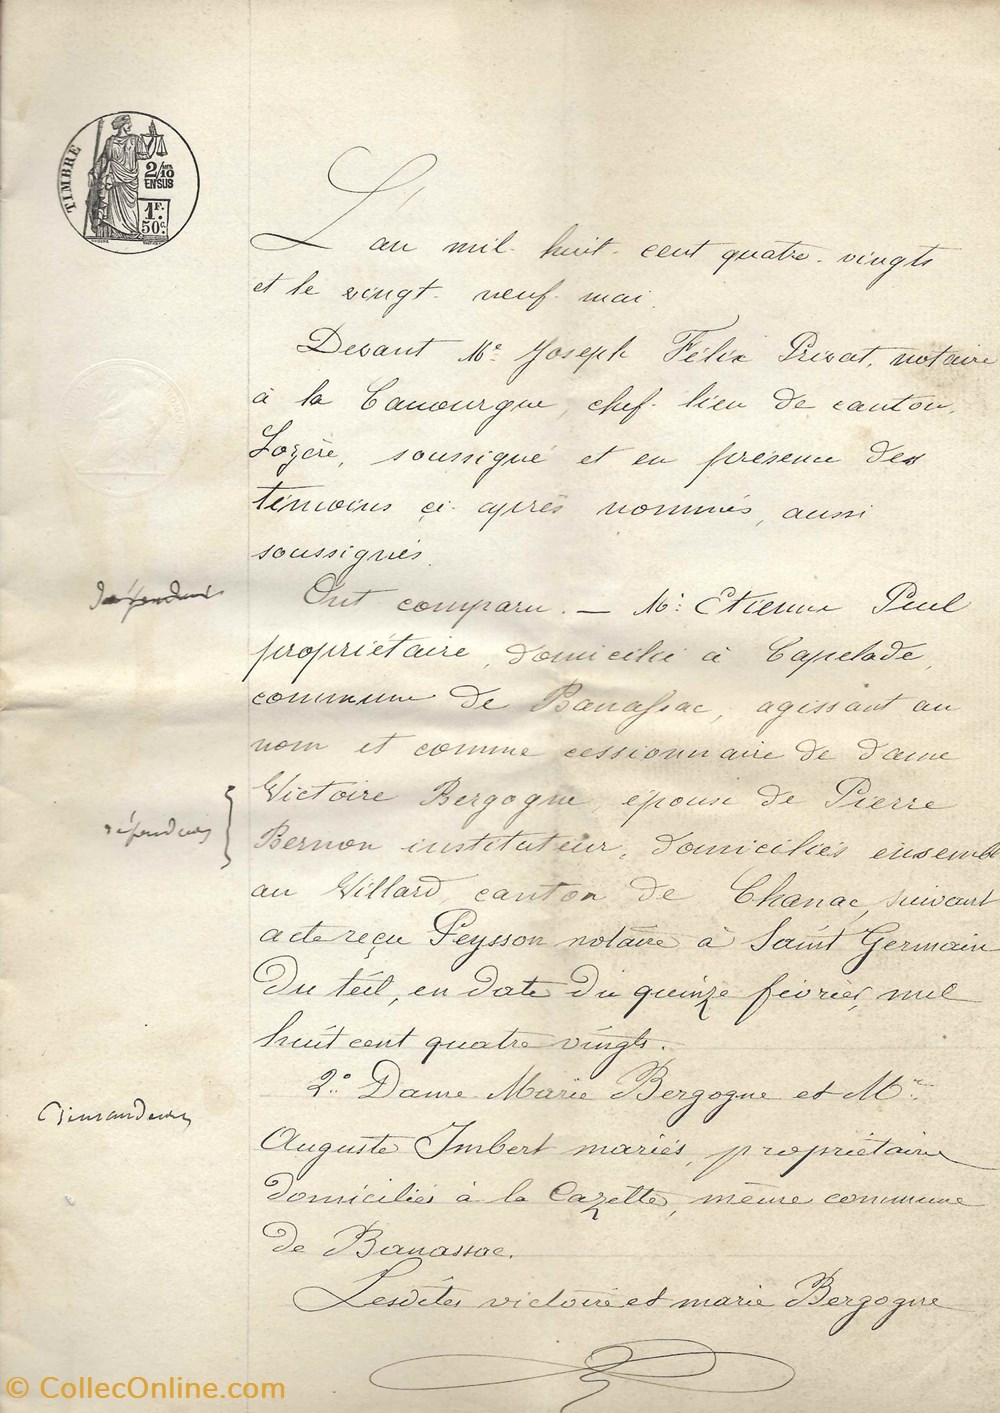 TIMBRE
2/10
EN SUS
1F.
50c.
L'an mil huit cent quatre-vingts
et le vingt-neuf mai.
Devant Me Joseph Félix Privat, notaire
à la Canourgue, chef-lieu de canton,
Lozère, soussigné et en présence des
témoins ci-après nommés, aussi
soussignés.
Ont comparu. — Mr Etienne
propriétaire, domicilié à Capelade,
commune de Banassac, agissant au
nom et comme cessionnaire de dame
Victoire Bergogne, épouse de Pierre
Bernon instituteur, domiciliés ensemble
au Villard, canton de Chanac, suivant
acte reçu Peysson notaire à Saint Germain
du teil, en date du quinze février, mil
huit cent quatre vingts.
2° Dame Marie Bergogne et Mr
Auguste Imbert mariés, propriétaire
domiciliés à la Cazette, même commune
de Banassac.
Lesdites victoire et marie Bergogne
défendeurs
demandeurs
© CollecOnline.com